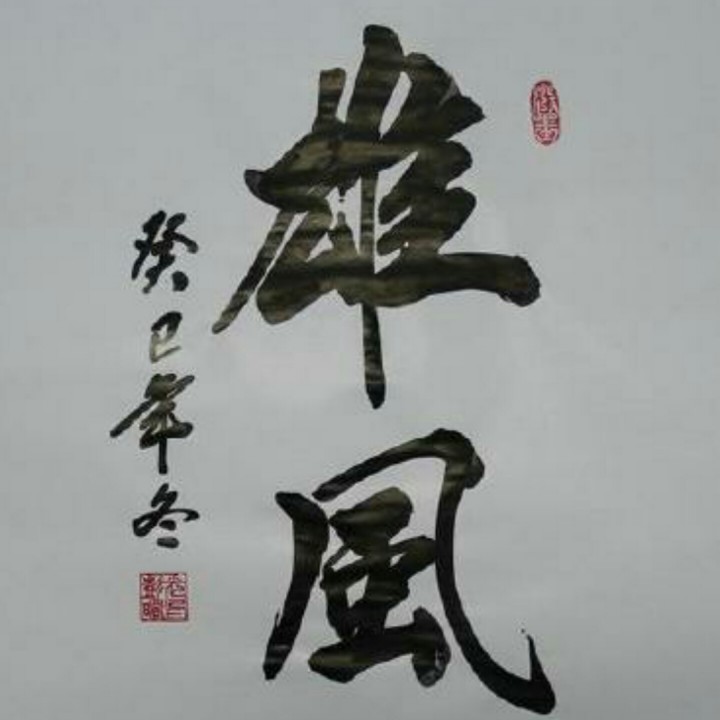 雄風
癸巳年冬